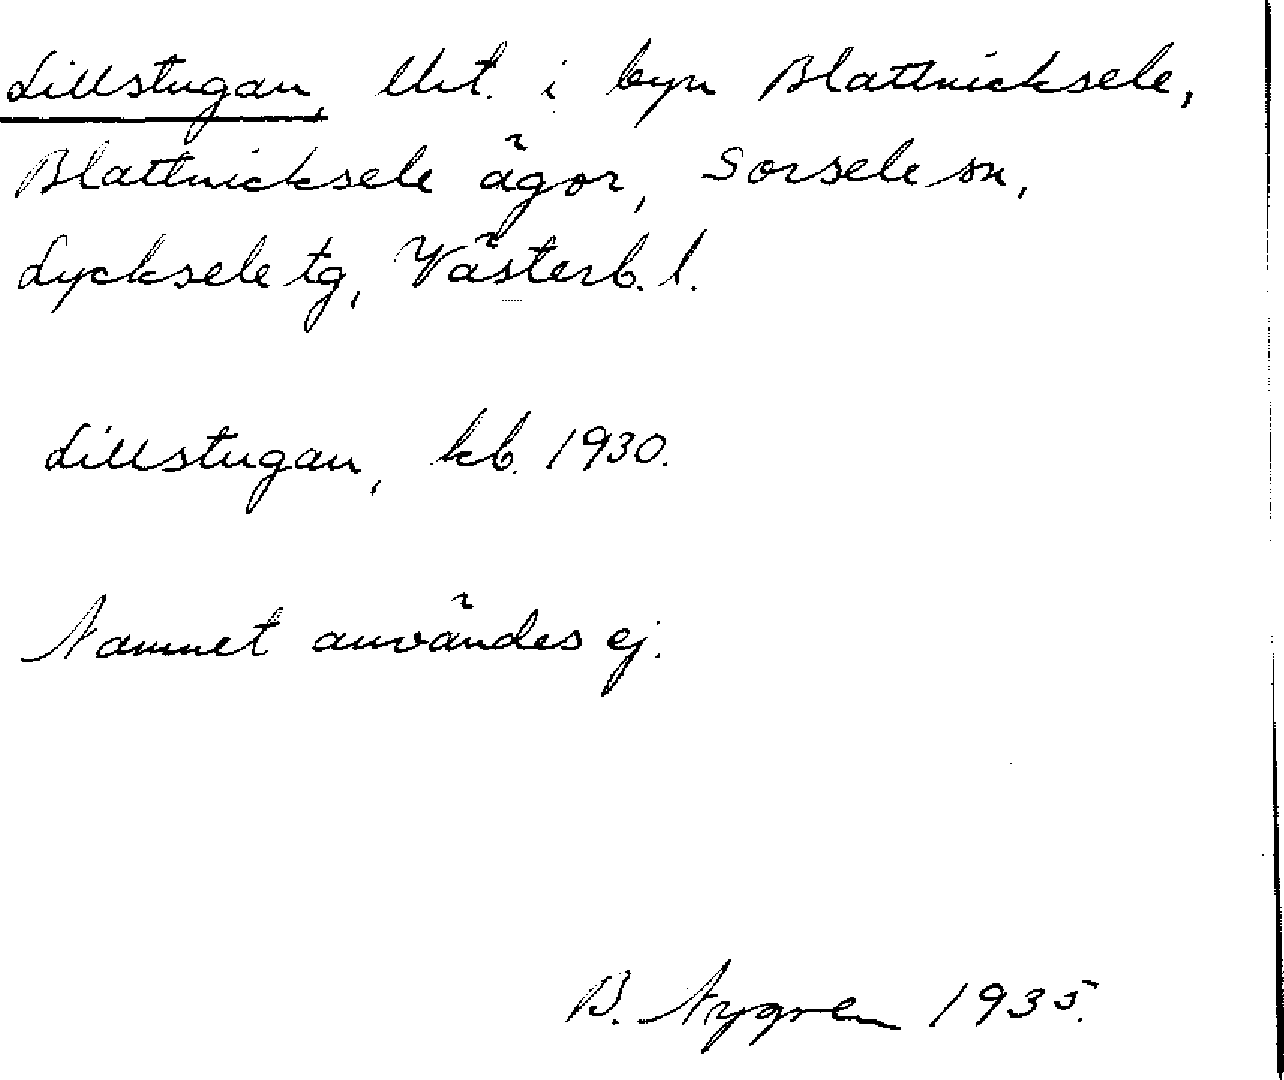 Lillstugan, Uht. i byn Blattnicksele,
Blattnicksele ägor, Sorsele sn,
Lycksele tg, Västerb. l.
Lillstugan, kb. 1930.
Namnet användes ej.
B. Nygren 1935.